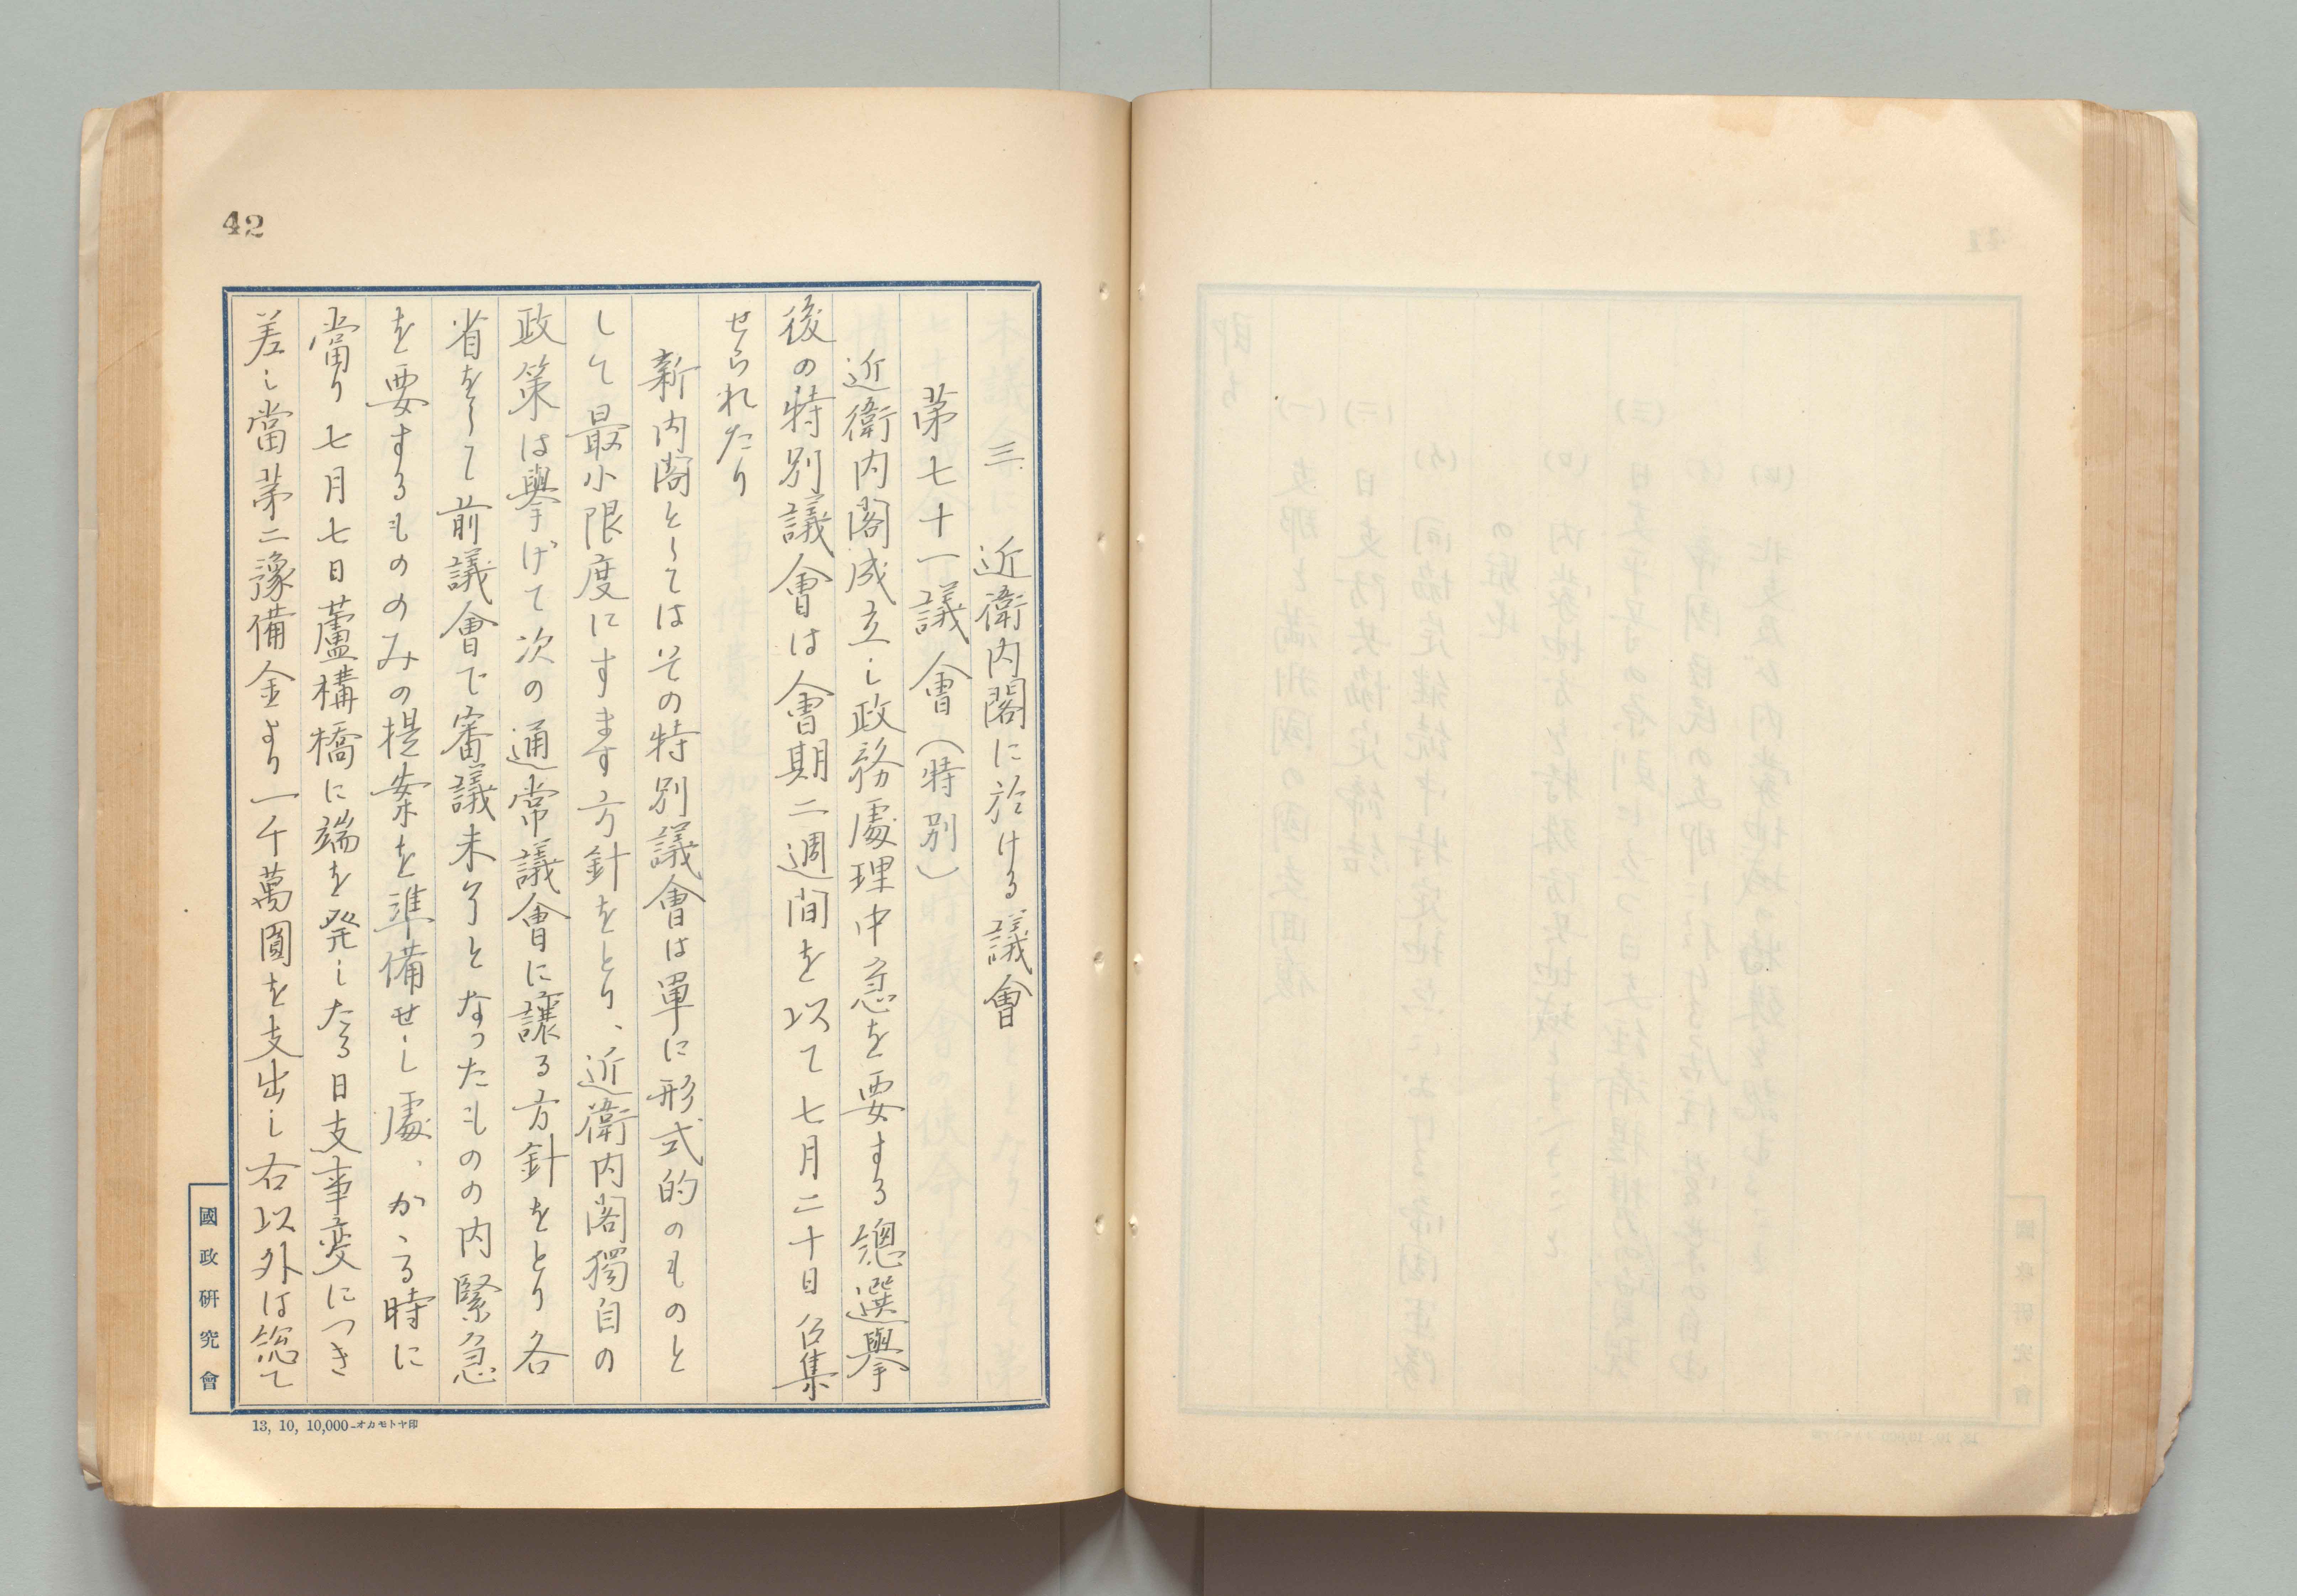 42
三 近衛内閣に於ける議會
第七十一議會(特別)
近衛内閣成立し政務處理中急を要する總選擧
後の特別議會は會期二週間を以て七月二十日召集
せられたり
新内閣としてはその特別議會は單に形式的のものと
して最小限度にすます方針をとり、近衛内閣獨自の
政策は擧げて次の通常議會に讓る方針をとり各
省をして前議會で審議未了となったものの内緊急
を要するもののみの提案を準備せし處、かゝる時に
當り七月七日蘆構橋に端を発したる日支事変につき
差し當第二豫備金より一千萬圓を支出し右以外は総て
國政研究會
13, 10, 10,000-オカモトヤ印